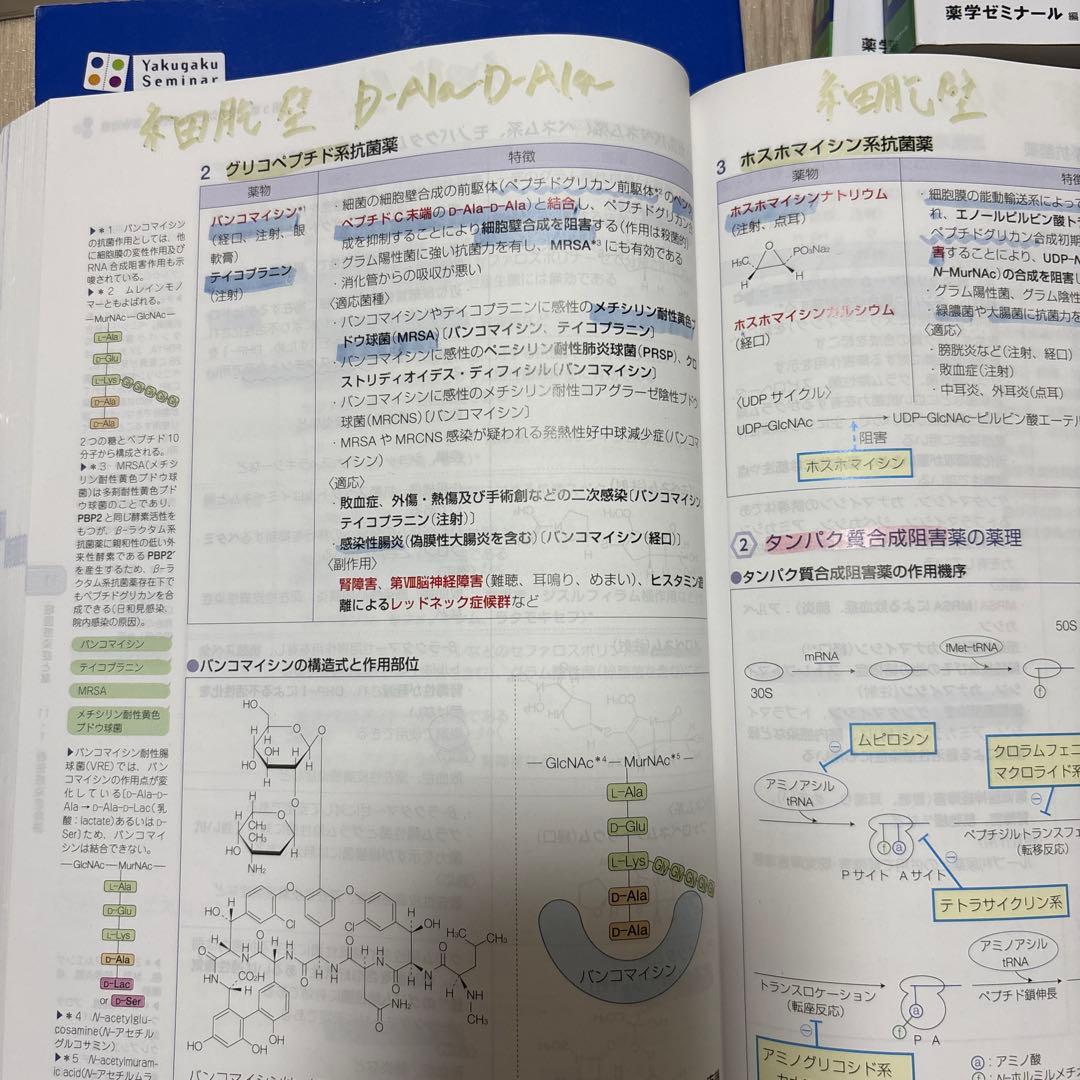 Yakugaku
Seminar
薬学ゼミナール 編
薬学
細胞壁 D-Ala-D-Ala
2 グリコペプチド系抗菌薬
薬物
特徴
バンコマイシン*1
(経口、注射、眼
軟膏)
テイコプラニン
(注射)
・細菌の細胞壁合成の前駆体(ペプチドグリカン前駆体*2のペンタ
ペプチドC末端のD-Ala-D-Ala)と結合し、ペプチドグリカン合
成を抑制することにより細胞壁合成を阻害する(作用は殺菌的)
・グラム陽性菌に強い抗菌力を有し、MRSA*3にも有効である
・消化管からの吸収が悪い
〈適応菌種〉
・バンコマイシンやテイコプラニンに感性のメチシリン耐性黄色ブ
ドウ球菌(MRSA)〔バンコマイシン、テイコプラニン〕
・バンコマイシンに感性のペニシリン耐性肺炎球菌(PRSP)、クロ
ストリディオイデス・ディフィシル〔バンコマイシン〕
・バンコマイシンに感性のメチシリン耐性コアグラーゼ陰性ブドウ
球菌(MRCNS)〔バンコマイシン〕
・MRSAやMRCNS感染が疑われる発熱性好中球減少症〔バンコマ
イシン〕
〈適応〉
・敗血症、外傷・熱傷及び手術創などの二次感染〔バンコマイシン、
テイコプラニン(注射)〕
・感染性腸炎(偽膜性大腸炎を含む)〔バンコマイシン(経口)〕
〈副作用〉
腎障害、第Ⅷ脳神経障害(難聴、耳鳴り、めまい)、ヒスタミン遊
離によるレッドネック症候群など
▶*1 バンコマイシン
の抗菌作用としては、他
に細胞膜の変性作用及び
RNA合成阻害作用も示
唆されている。
▶*2 ムレインモノ
マーともよばれる。
—MurNAc—GlcNAc—
L-Ala
D-Glu
L-Lys G G G G G
D-Ala
D-Ala
2つの糖とペプチド10
分子から構成される。
▶*3 MRSA(メチシ
リン耐性黄色ブドウ球
菌)は多剤耐性黄色ブド
ウ球菌のことであり、
PBP2と同じ酵素活性を
もつが、β-ラクタム系
抗菌薬に親和性の低い外
来性酵素であるPBP2′
を産生するため、β-ラ
クタム系抗菌薬存在下で
もペプチドグリカンを合
成できる(日和見感染、
院内感染の原因)。
バンコマイシン
テイコプラニン
MRSA
メチシリン耐性黄色
ブドウ球菌
▶バンコマイシン耐性腸
球菌(VRE)では、バン
コマイシンの作用点が変
化している(D-Ala-D-
Ala→D-Ala-D-Lac(乳
酸:lactate)あるいはD-
Ser)ため、バンコマイ
シンは結合できない。
—GlcNAc—MurNAc—
L-Ala
D-Glu
L-Lys
D-Ala
D-Lac
or D-Ser
▶*4 N-acetylglu-
cosamine(N-アセチル
グルコサミン)
▶*5 N-acetylmuram-
ic acid(N-アセチルムラ
●バンコマイシンの構造式と作用部位
HO
OH
NH₂
CH₃
Cl
CO₂H
H₃C
—GlcNAc*4—MurNAc*5—
L-Ala
D-Glu
L-Lys G G G G G
D-Ala
D-Ala
バンコマイシン
細胞壁
3 ホスホマイシン系抗菌薬
薬物
特徴
ホスホマイシンナトリウム
(注射、点耳)
H₃C O PO₃Na₂
H H
ホスホマイシンカルシウム
(経口)
・細胞膜の能動輸送系によって
れ、エノールピルビン酸ト
ペプチドグリカン合成初期
害することにより、UDP-M
N-MurNAc)の合成を阻害し
・グラム陽性菌、グラム陰性
緑膿菌や大腸菌に抗菌力を
〈適応〉
・膀胱炎など(注射、経口)
・敗血症(注射)
・中耳炎、外耳炎(点耳)
〈UDPサイクル〉
UDP-GlcNAc → UDP-GlcNAc-ピルビン酸エーテル
阻害
ホスホマイシン
2 タンパク質合成阻害薬の薬理
●タンパク質合成阻害薬の作用機序
50S
mRNA
fMet-tRNA
30S
f
ムピロシン
クロラムフェニ
マクロライド系
アミノアシル
tRNA
f a
Pサイト Aサイト
ペプチジルトランスフェ
(転移反応)
テトラサイクリン系
アミノアシル
tRNA
トランスロケーション
(転座反応)
a
f
P A
ペプチド鎖伸長
アミノグリコシド系
a:アミノ酸
f:N-ホルミルメチ